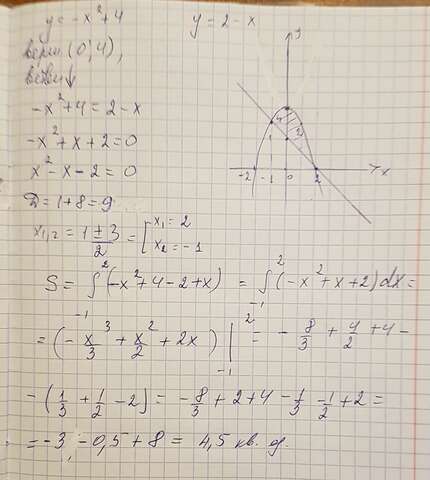 y = -x² + 4   y = 2 - x
верш. (0; 4),
ветви ↓
-x² + 4 = 2 - x
-x² + x + 2 = 0
x² - x - 2 = 0
D = 1 + 8 = 9
x₁,₂ = (1 ± 3)/2 = [x₁ = 2
x₂ = -1
y
-2 -1 0 2 x
S = ∫₋₁² (-x² + 4 - 2 + x) = ∫₋₁² (-x² + x + 2) dx =
= (-x³/3 + x²/2 + 2x) |₋₁² = -8/3 + 4/2 + 4 -
- (1/3 + 1/2 - 2) = -8/3 + 2 + 4 - 1/3 - 1/2 + 2 =
= -3 - 0,5 + 8 = 4,5 кв. ед.